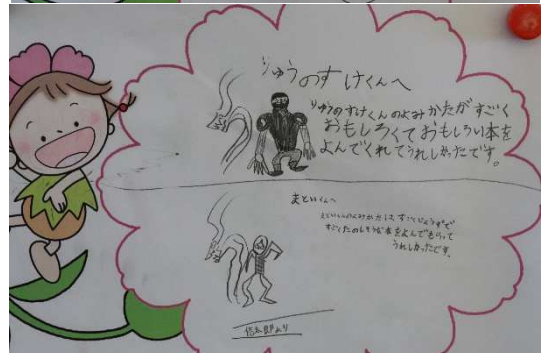 りゅうのすけくんへ
りゅうのすけくんのよみかたがすごく
おもしろくておもしろい本を
よんでくれてうれしかったです。
まといくんへ
まといくんのよみかたは、すごくじょうずで
すごくたのしそうな本をよんでもらって
うれしかったです。
より